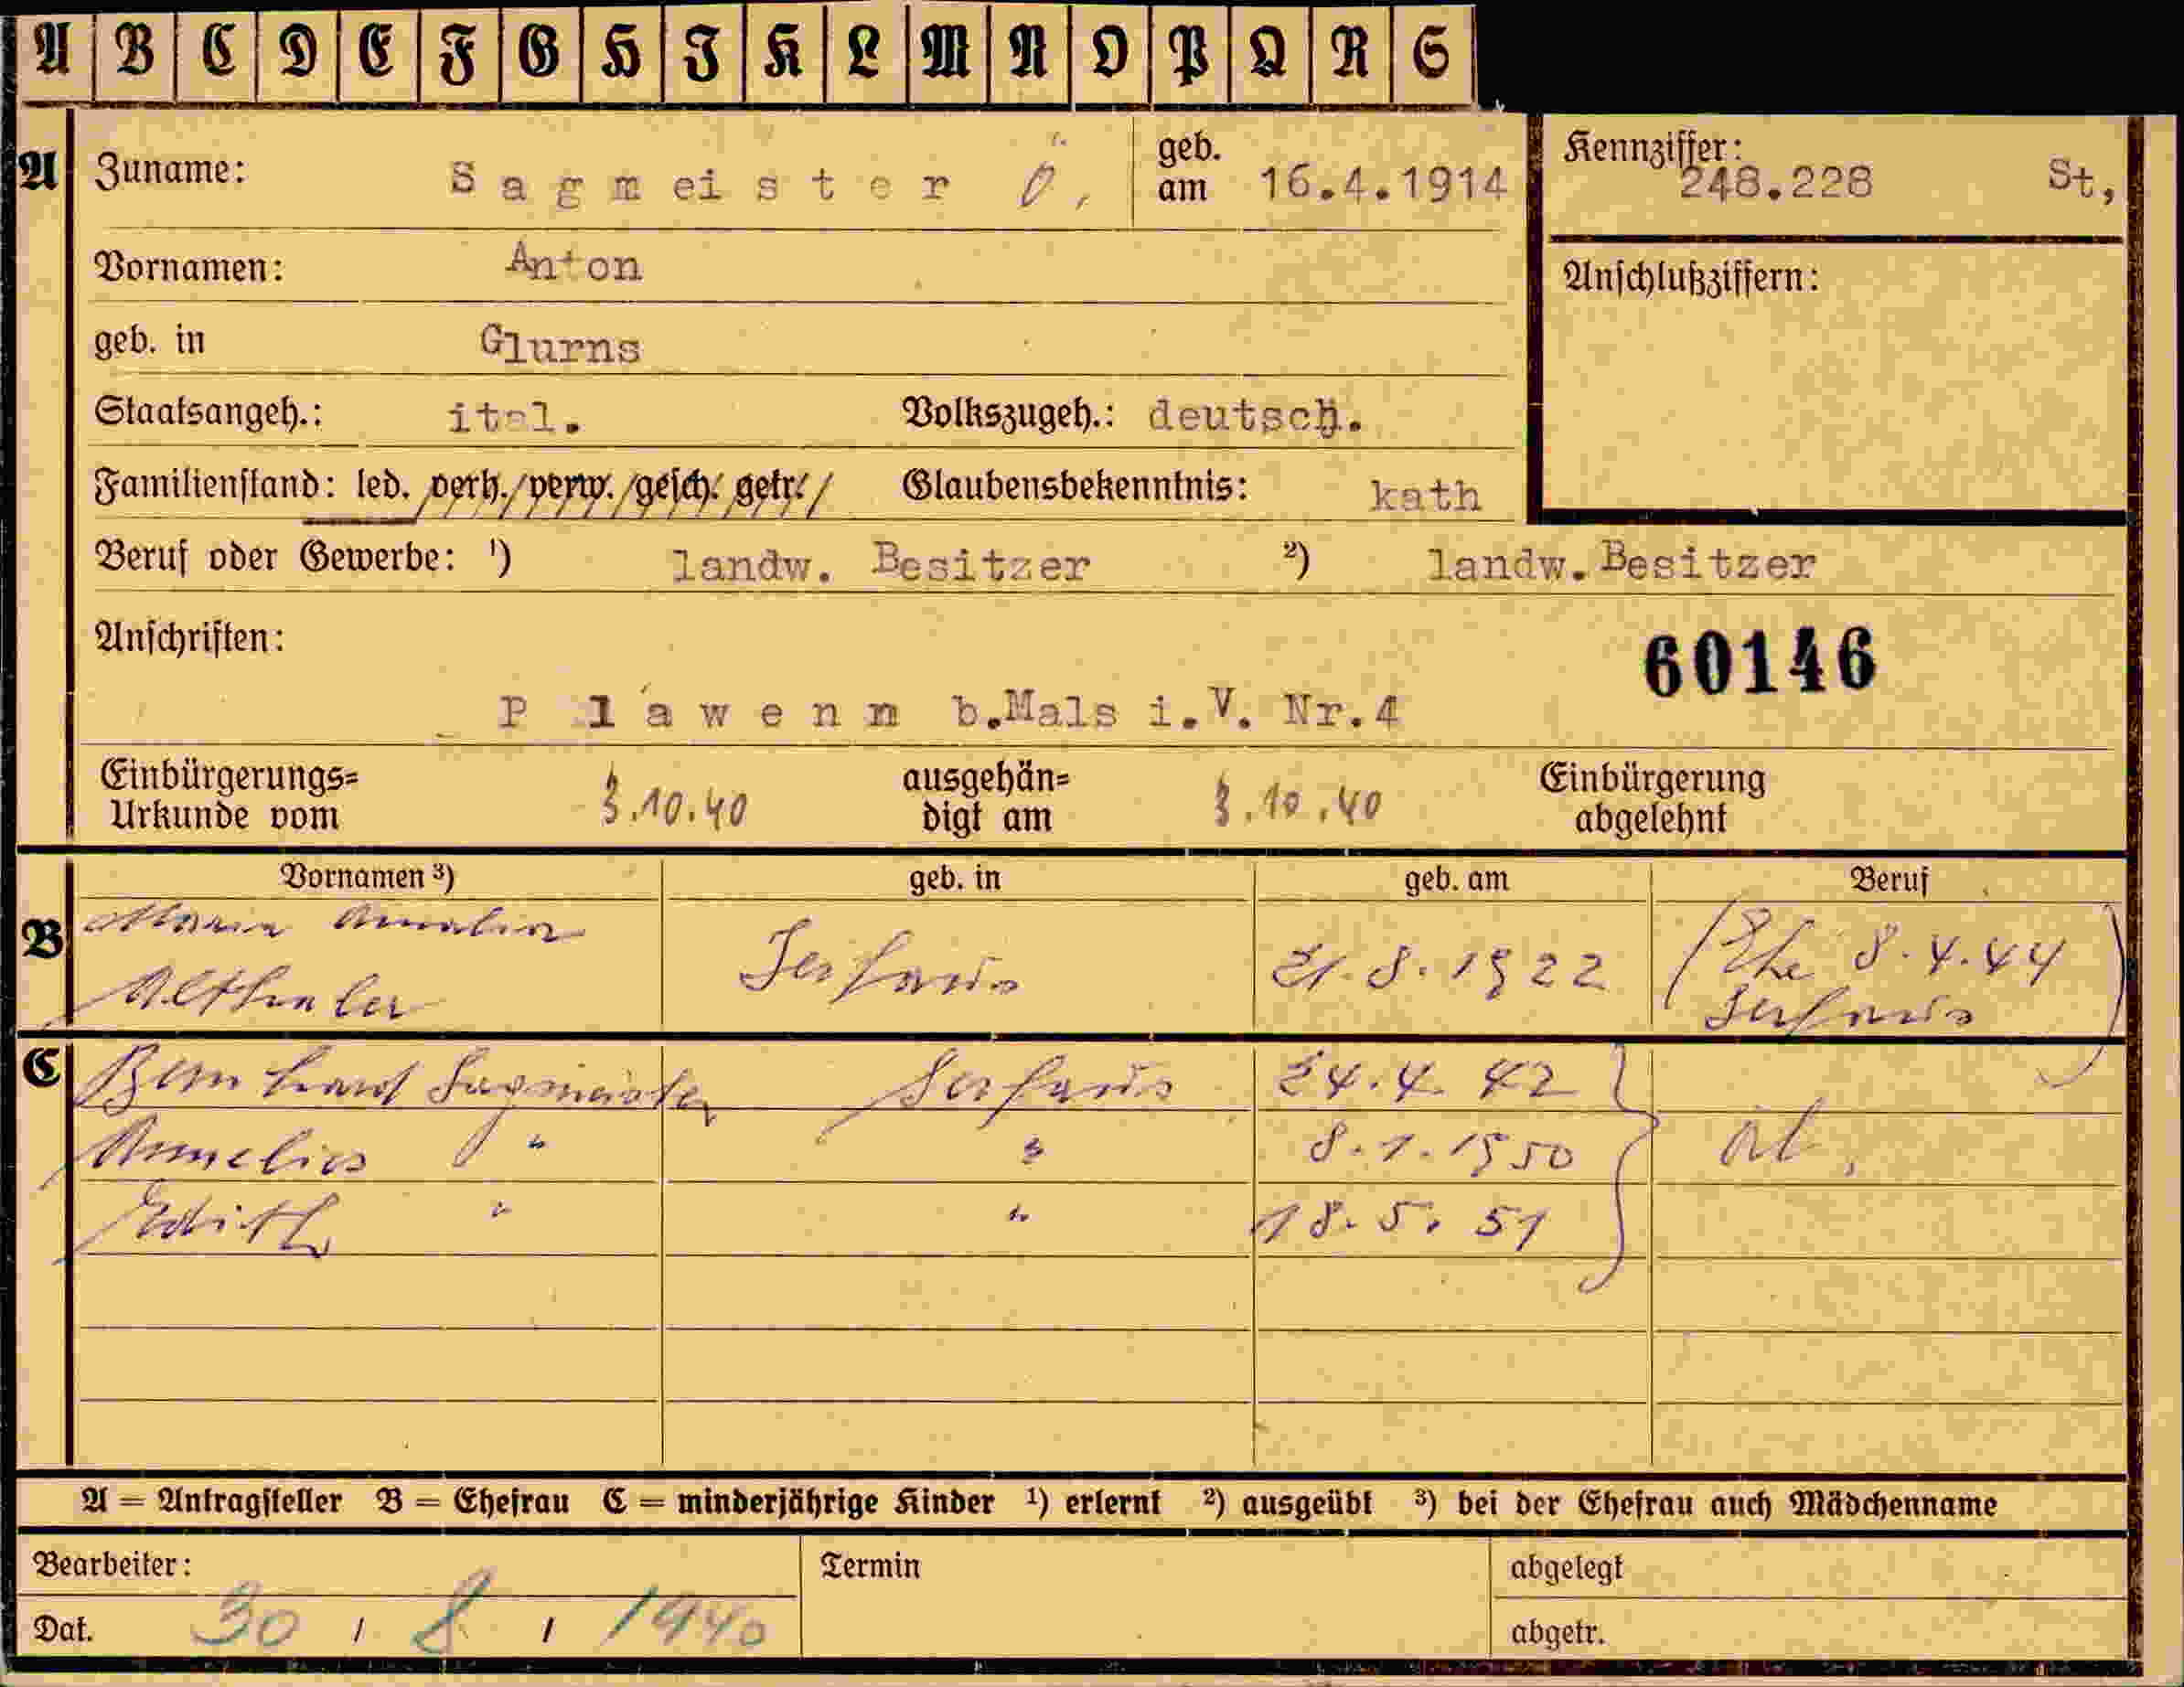 A B C D E F G H I K L M N O P Q R S
A Zuname: Sagmeister Ö, geb. am 16.4.1914 Kennziffer: 248.228 St,
Vornamen: Anton Anschlußziffern:
geb. in Glurns
Staatsangeh.: ital. Volkszugeh.: deutsch.
Familienstand: led. verh. verw. gesch. getr. Glaubensbekenntnis: kath
Beruf oder Gewerbe: ¹) landw. Besitzer ²) landw. Besitzer
Anschriften: 60146
Plawenn b.Mals i.V. Nr.4
Einbürgerungs= Urkunde vom 3.10.40 ausgehän= digt am 3.10.40 Einbürgerung abgelehnt
Vornamen ³) geb. in geb. am Beruf
B Maria Amalia Serfaus 21.8.1922 (Ehe 8.4.44
Althaler Serfaus)
C Bernhard Sagmeister Serfaus 24.4.42
Annelies " " 8.1.1950
Edith " " 18.5.51
A = Antragsteller B = Ehefrau C = minderjährige Kinder ¹) erlernt ²) ausgeübt ³) bei der Ehefrau auch Mädchenname
Bearbeiter: Termin abgelegt
Dat. 30 / 8 / 1940 abgetr.